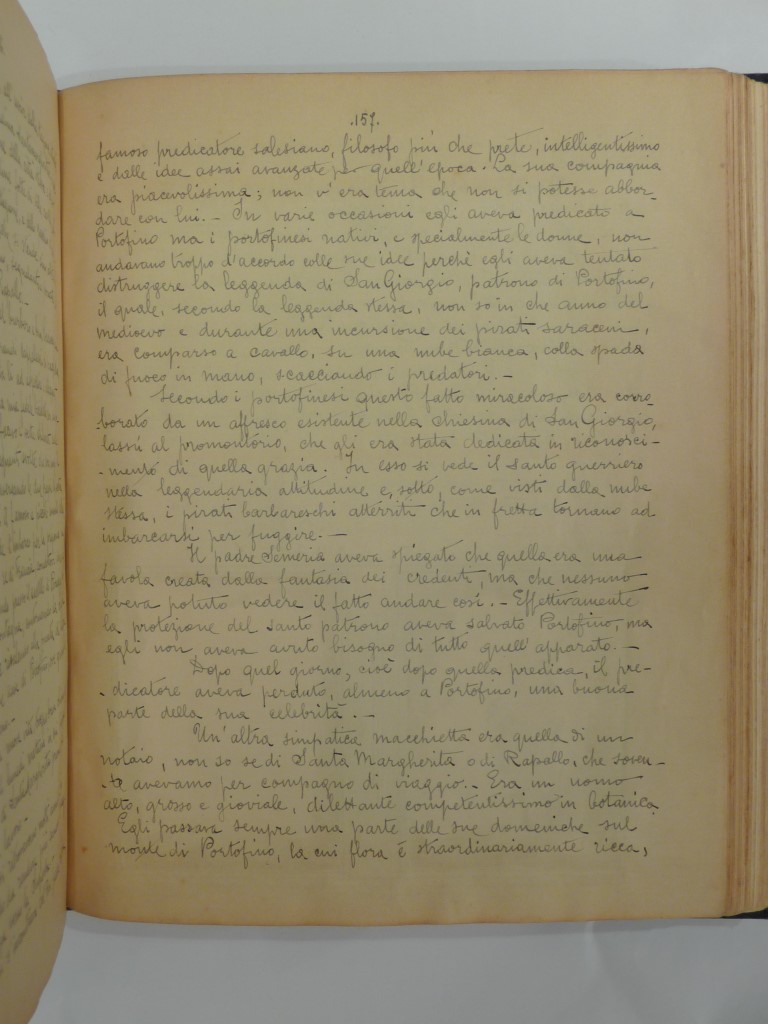 .157.
famoso predicatore salesiano, filosofo più che prete, intelligentissimo
e dalle idee assai avanzate per quell'epoca. La sua compagnia
era piacevolissima; non v'era tema che non si potesse abbor-
dare con lui. - In varie occasioni egli aveva predicato a
Portofino ma i portofinesi nativi, e specialmente le donne, non
andavano troppo d'accordo colle sue idee perchè egli aveva tentato
distruggere la leggenda di San Giorgio, patrono di Portofino,
il quale, secondo la leggenda stessa, non so in che anno del
medioevo e durante una incursione dei pirati saraceni,
era comparso a cavallo, su una nube bianca, colla spada
di fuoco in mano, scacciando i predatori. -
Secondo i portofinesi questo fatto miracoloso era corro-
-borato da un affresco esistente nella chiesina di San Giorgio,
lassù al promontorio, che gli era stata dedicata in riconosci-
-mento di quella grazia. In esso si vede il santo guerriero
nella leggendaria attitudine e, sotto, come visti dalla nube
stessa, i pirati barbareschi atterriti che in fretta tornano ad
imbarcarsi per fuggire. -
Il padre Semeria aveva spiegato che quella era una
favola creata dalla fantasia dei credenti, ma che nessuno
aveva potuto vedere il fatto andare così. - Effettivamente
la protezione del santo patrono aveva salvato Portofino, ma
egli non aveva avuto bisogno di tutto quell'apparato. -
Dopo quel giorno, cioè dopo quella predica, il pre-
-dicatore aveva perduto, almeno a Portofino, una buona
parte della sua celebrità. -
Un'altra simpatica macchietta era quella di un
notaio, non so se di Santa Margherita o di Rapallo, che soven-
-te avevamo per compagno di viaggio. - Era un uomo
alto, grosso e gioviale, dilettante competentissimo in botanica
Egli passava sempre una parte delle sue domeniche sul
monte di Portofino, la cui flora è straordinariamente ricca,